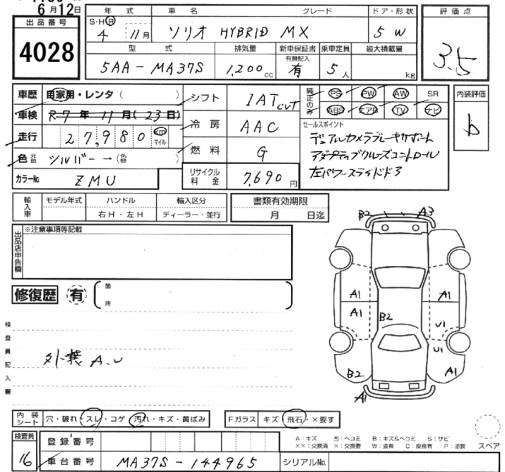 6月12日
出品番号
4028
年式 車名 グレード ドア・形状
S・H・R 4年 11月 ソリオ HYBRID MX 5W
型式 排気量 新車保証書 乗車定員 最大積載量
有無記入
5AA-MA37S 1,200cc 有 5人 kg
評価点
3.5
車歴 自家用・レンタ( )
車検 R-7年11月(23日)
走行 27,980 km マイル
色 元色 シルバー→(色替 )
カラーNo ZMU
シフト IAT CVT
冷房 AAC
燃料 G
リサイクル料金 7,690円
純正のみ○ PS PW AW SR
ABS エアB TV ナビ
セールスポイント
デュアルカメラブレーキサポート
アダプティブクルーズコントロール
左パワースライドドア
内装評価
b
輸入車 モデル年式 ハンドル 輸入区分
年 右H・左H ディーラー・並行
書類有効期限
月 日迄
出品店申告欄
※注意事項等記載
修復歴 有
箇所
検査員記入欄
外横A.U
B2 A3
A1 A1
A1 B2 U1
U1
B2 A1 A1 B2
内装シート 穴・破れ・スレ・コゲ・汚れ・キズ・黄ばみ
Fガラス キズ・飛石・×要す
A:キズ U:ヘコミ B:キズ&ヘコミ S:サビ
××:交換済 X:交換要 W:波有 C:腐食有 P:塗装
スペア
検査員
16
登録番号
車台番号 MA37S-144965
シリアルNo.